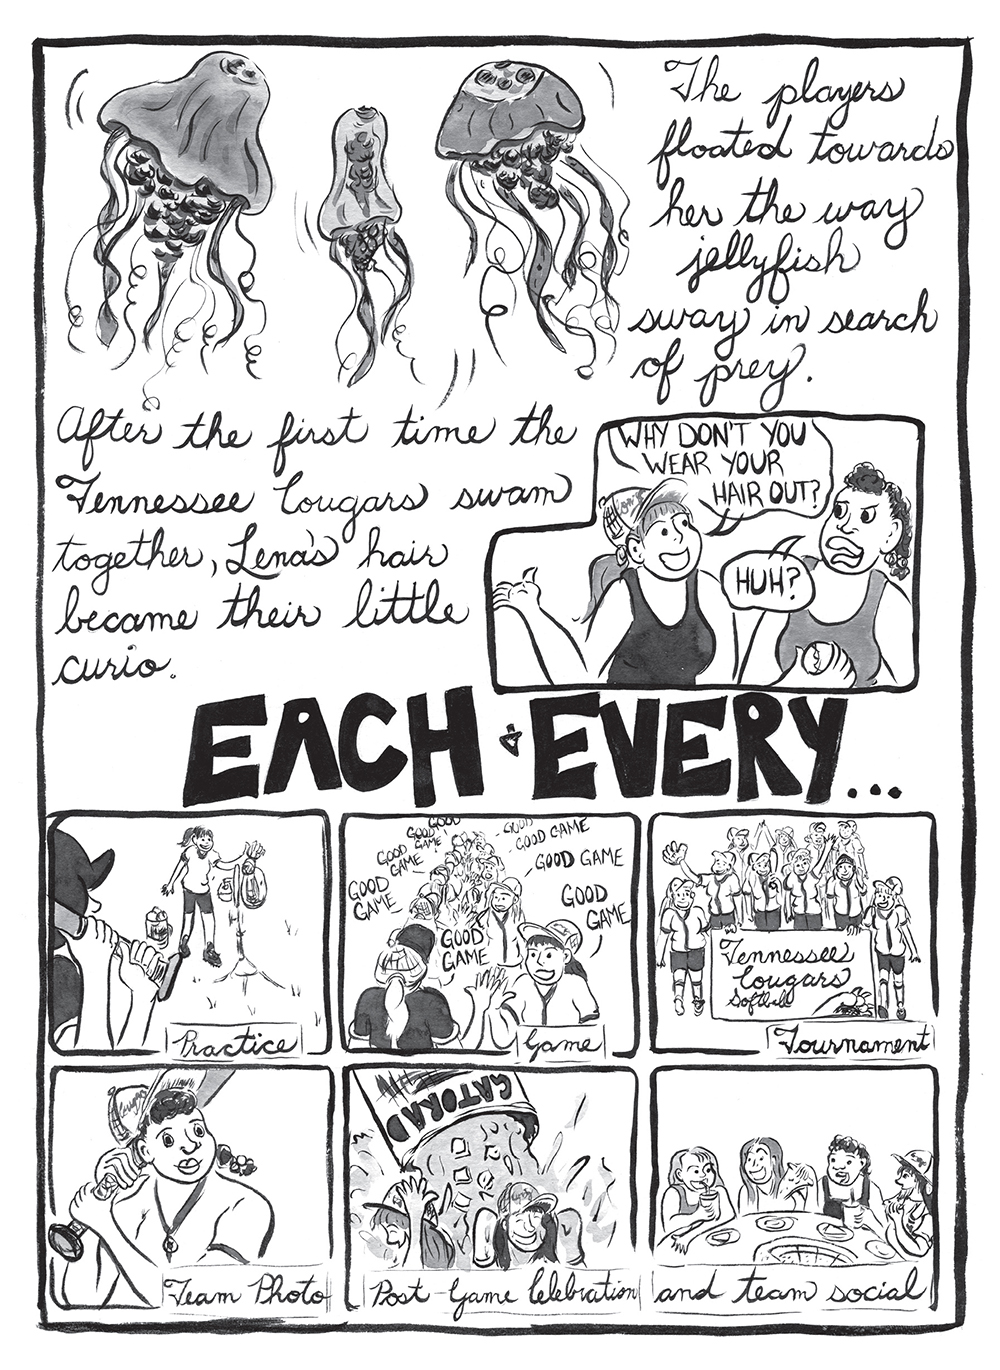 The players
floated towards
her the way
jellyfish
sway in search
of prey.
After the first time the
Tennessee Cougars swam
together, Lena's hair
became their little
curio.
WHY DON'T YOU
WEAR YOUR
HAIR OUT?
HUH?
EACH & EVERY...
Practice
GOOD
GOOD
GAME
GOOD
GAME
GOOD
GAME
GOOD
GAME
GOOD GAME
GOOD GAME
GOOD
GAME
Game
Tennessee
Cougars
Softball
Tournament
Team Photo
GATORAD
Post-Game Celebration
and team social